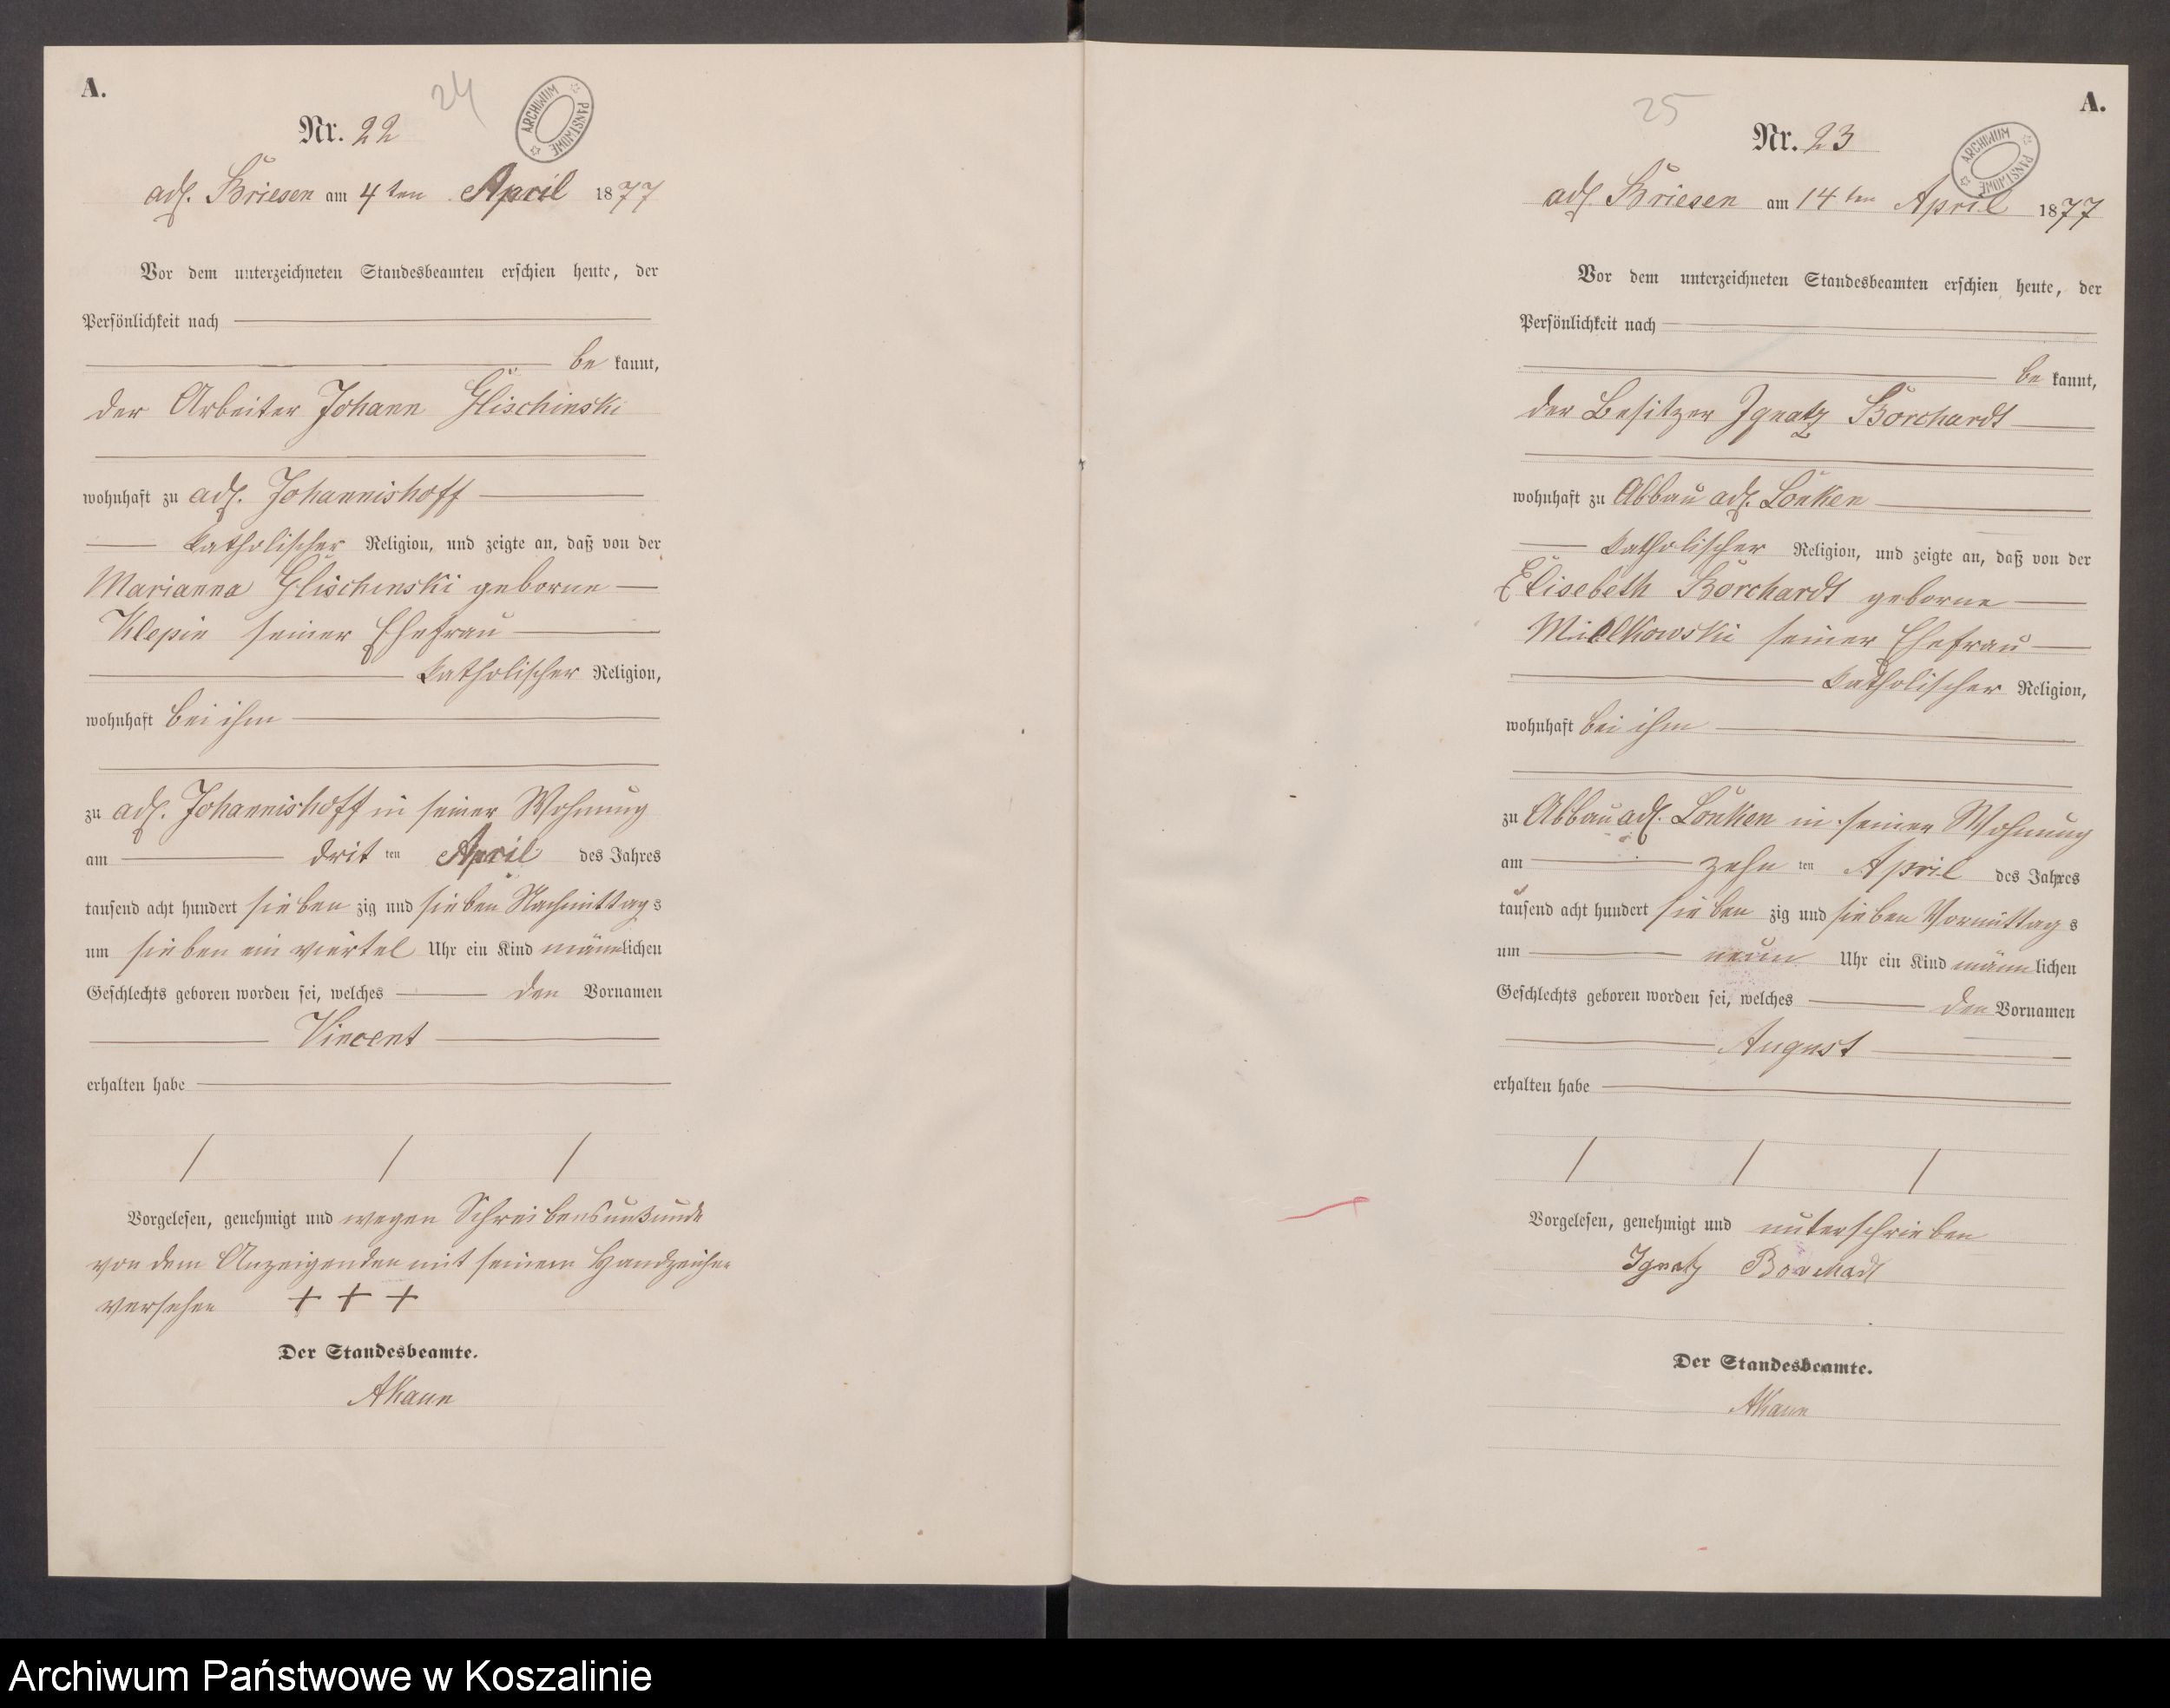 A.
24
Nr. 22
ARCHIWUM PAŃSTWOWE
adl. Briesen am 4ten April 1877
Vor dem unterzeichneten Standesbeamten erschien heute, der
Persönlichkeit nach
be kannt,
der Arbeiter Johann Glischinski
wohnhaft zu adl. Johannishoff
katholischer Religion, und zeigte an, daß von der
Marianna Glischinski geborne
Klepin seiner Ehefrau
katholischer Religion,
wohnhaft bei ihm
zu adl. Johannishoff in seiner Wohnung
am drit ten April des Jahres
tausend acht hundert sieben zig und sieben Nachmittag s
um sieben ein viertel Uhr ein Kind männlichen
Geschlechts geboren worden sei, welches den Vornamen
Vincent
erhalten habe
Vorgelesen, genehmigt und wegen Schreibensunkunde
von dem Anzeigenden mit seinem Handzeichen
versehen + + +
Der Standesbeamte.
AKaun
A.
25
Nr. 23
ARCHIWUM PAŃSTWOWE
adl. Briesen am 14ten April 1877
Vor dem unterzeichneten Standesbeamten erschien heute, der
Persönlichkeit nach
be kannt,
der Besitzer Ignatz Borchardt
wohnhaft zu Abbau adl. Lonken
katholischer Religion, und zeigte an, daß von der
Elisebeth Borchardt geborne
Mielkowski seiner Ehefrau
katholischer Religion,
wohnhaft bei ihm
zu Abbau adl. Lonken in seiner Wohnung
am zehn ten April des Jahres
tausend acht hundert sieben zig und sieben Vormittag s
um neun Uhr ein Kind männlichen
Geschlechts geboren worden sei, welches den Vornamen
August
erhalten habe
Vorgelesen, genehmigt und unterschrieben
Ignatz Borchadt
Der Standesbeamte.
AKaun
Archiwum Państwowe w Koszalinie